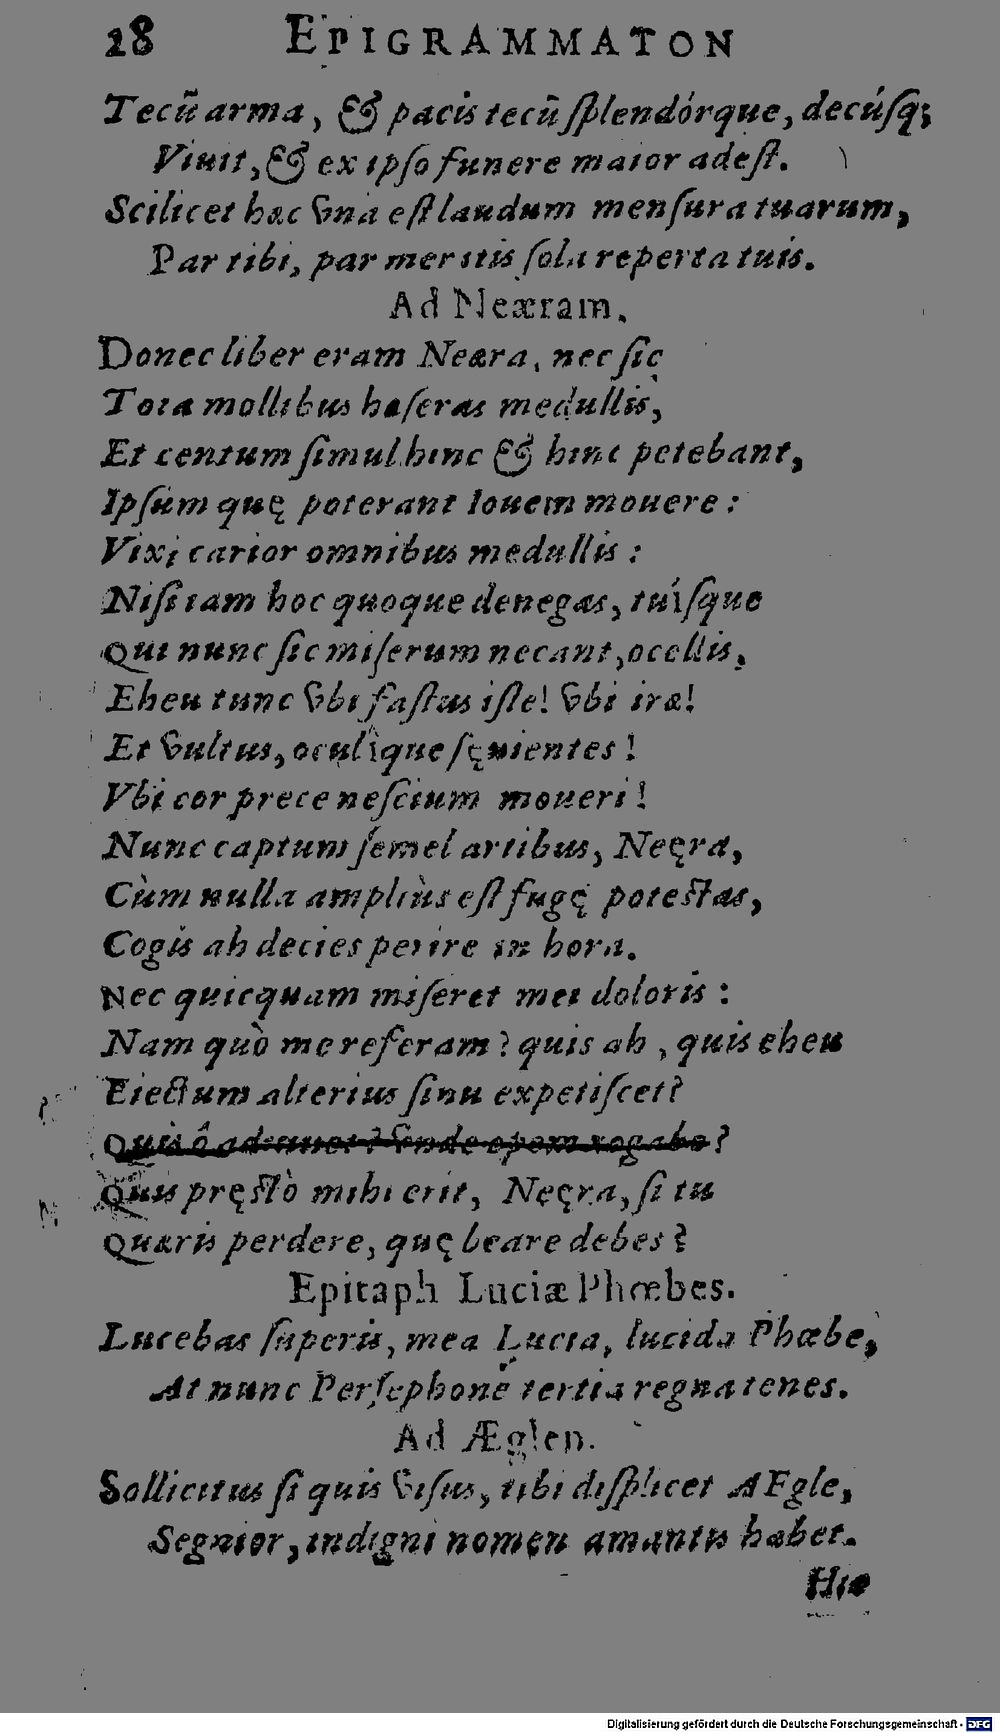 28 EPIGRAMMATON
Tecũ arma, & pacis tecũ ſplendórque, decúſq;
Viuit, & ex ipſo funere maior adeſt.
Scilicet hæc vna eſt laudum menſura tuarum,
Par tibi, par meritis ſola reperta tuis.
Ad Neæram.
Donec liber eram Neæra, nec ſic
Tota mollibus haſeras medullis,
Et centum ſimul hinc & hinc petebant,
Ipſum quę poterant Iouem mouere:
Vixi carior omnibus medullis:
Niſi iam hoc quoque denegas, tuiſque
Qui nunc ſic miſerum necant, ocellis,
Eheu tunc vbi faſtus iſte! vbi iræ!
Et vultus, oculìque ſęuientes!
Vbi cor prece neſcium moueri!
Nunc captum ſemel artibus, Neęra,
Cùm nulla ampliùs eſt fugę poteſtas,
Cogis ah decies perire in hora.
Nec quicquam miſeret mei doloris:
Nam quò me referam? quis ah, quis eheu
Eiectum alterius ſinu expetiſcet?
Quis ô vnde opem rogabo?
Quis pręſtò mihi erit, Neęra, ſi tu
Quæris perdere, quę beare debes?
Epitaph Luciæ Phœbes.
Lucebas ſuperis, mea Lucia, lucida Phœbe,
At nunc Perſephone tertia regna tenes.
Ad Æglen.
Sollicitus ſi quis viſus, tibi diſplicet AEgle,
Segnior, indigni nomen amantis habet.
Hic
Digitalisierung gefördert durch die Deutsche Forschungsgemeinschaft - DFG